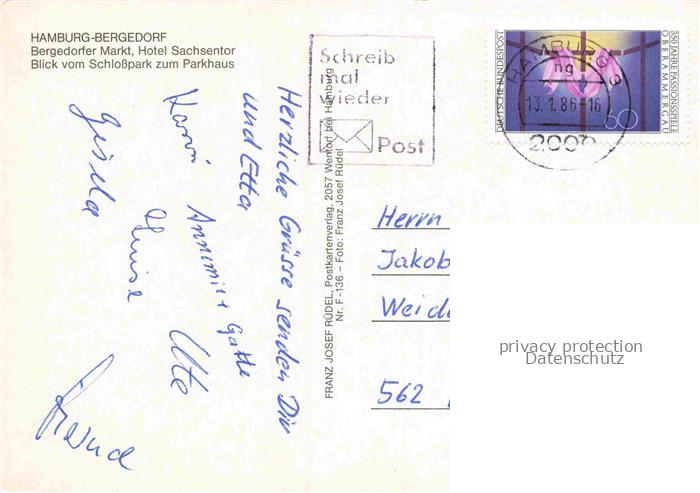 HAMBURG-BERGEDORF
Bergedorfer Markt, Hotel Sachsentor
Blick vom Schloßpark zum Parkhaus
Schreib
mal
wieder
Post
DEUTSCHE BUNDESPOST
350 JAHRE PASSIONSSPIELE
OBERAMMERGAU
60
HAMBURG
ng
13.1.86-16
2000
Herzliche Grüsse senden Dir
und Etta
Annemie + Gatte
Ute
Gisela
FRANZ JOSEF RÜDEL, Postkartenverlag, 2057 Wentorf bei Hamburg
Nr. F-136 – Foto: Franz Josef Rüdel
Herrn
Jakob
Weid
562
privacy protection
Datenschutz